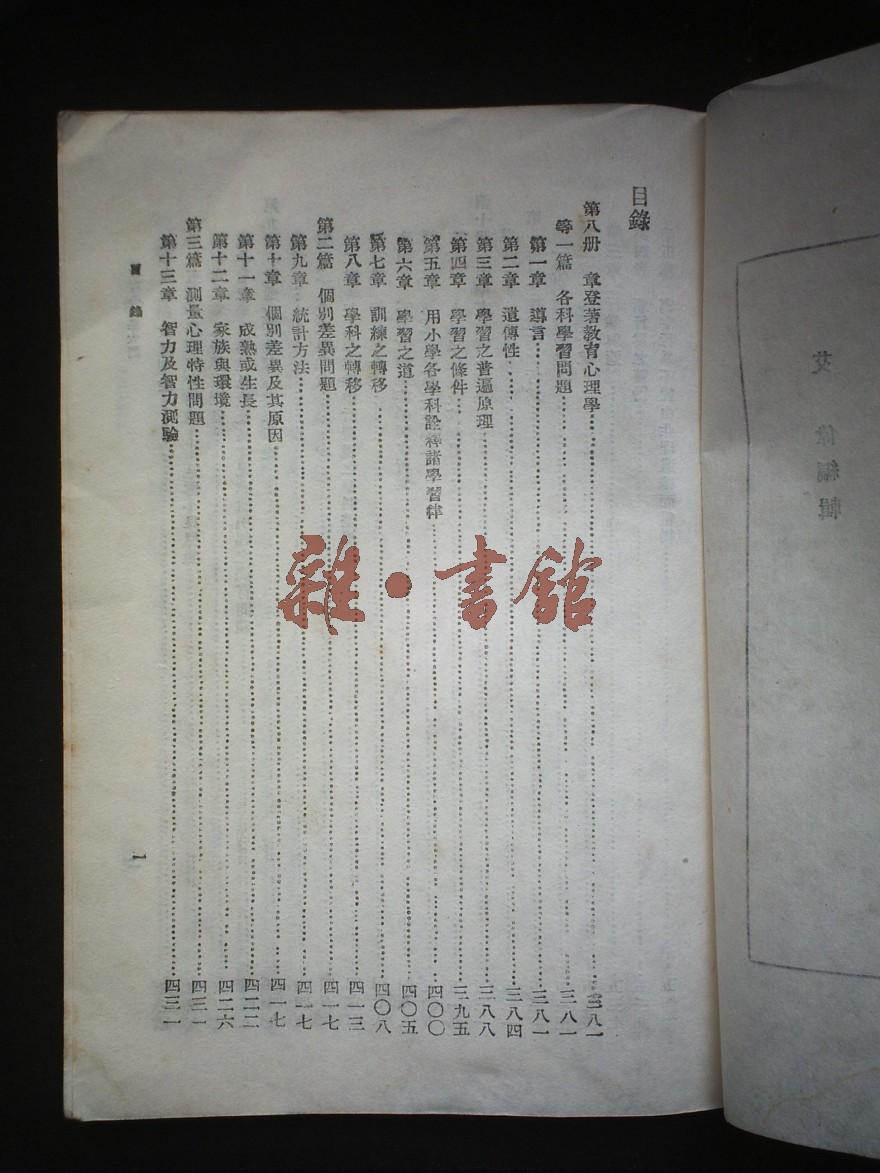 目錄
第八册 章登著教育心理學……三八一
等一篇 各科學習問題……三八一
第一章 導言……三八一
第二章 遺傳性……三八四
第三章 學習之普遍原理……三八八
第四章 學習之條件……三九五
第五章 用小學各學科詮釋諸學習律……四〇〇
第六章 學習之道……四〇五
第七章 訓練之轉移……四〇八
第八章 學科之轉移……四一三
第二篇 個別差異問題……四一七
第九章 統計方法……四一七
第十章 個別差異及其原因……四一七
第十一章 成熟或生長……四二二
第十二章 家族與環境……四二六
第三篇 測量心理特性問題……四三一
第十三章 智力及智力測驗……四三一
目錄
一
雜·書館